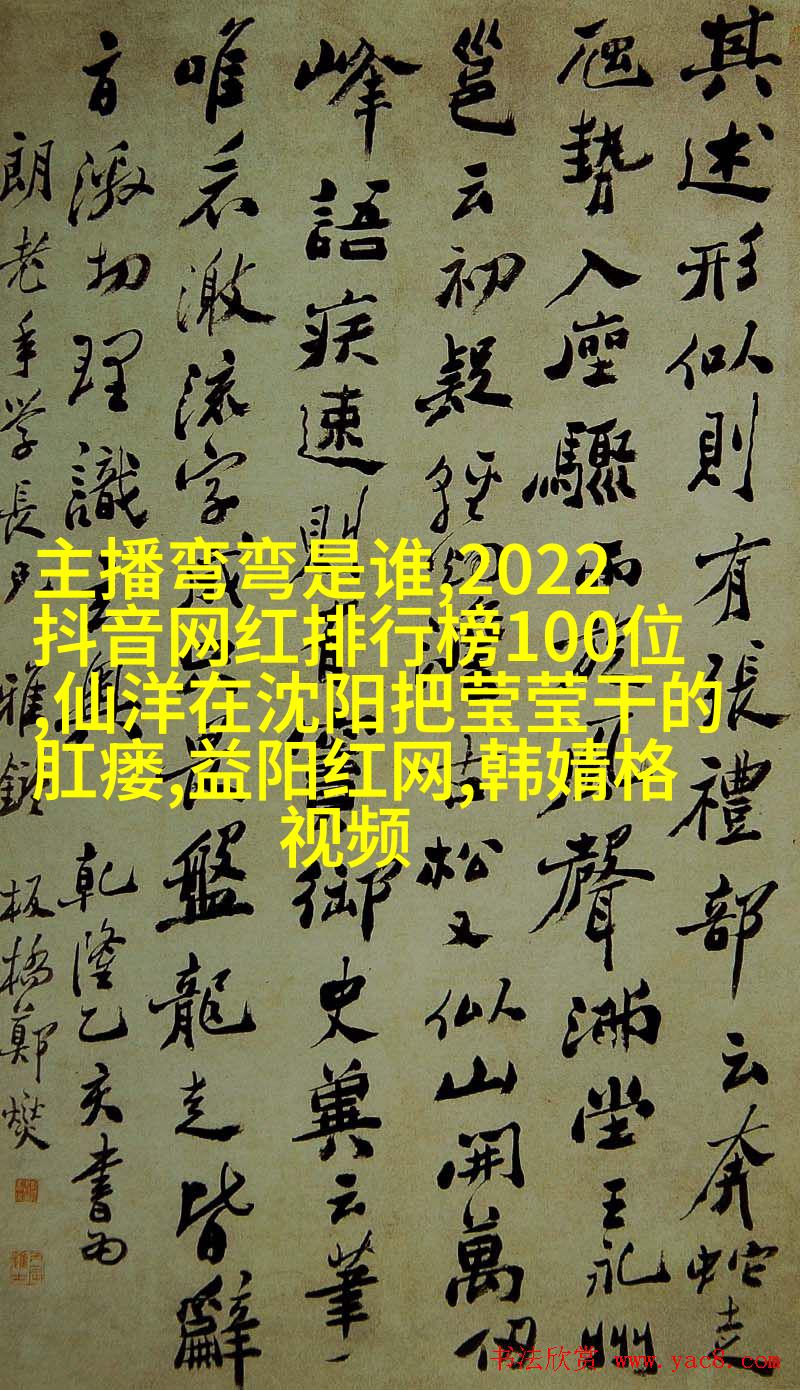 其述形似則有張禮部云奔蛇走
虺勢入座驟雨旋風聲滿堂王永州
邕云初疑輕煙澹古松又似山開萬仞
峰語疾速則有御史冀云筆一
唯看激流字盤龍走皆辭
旨激切理識玄奧 乾隆乙亥書為
朗老年學長兄 雅鑒 板橋鄭燮
主播弯弯是谁,2022
抖音网红排行榜100位
,仙洋在沈阳把莹莹干的
肛瘘,益阳红网,韩婧格
视频
书法欣赏 www.yac8.com